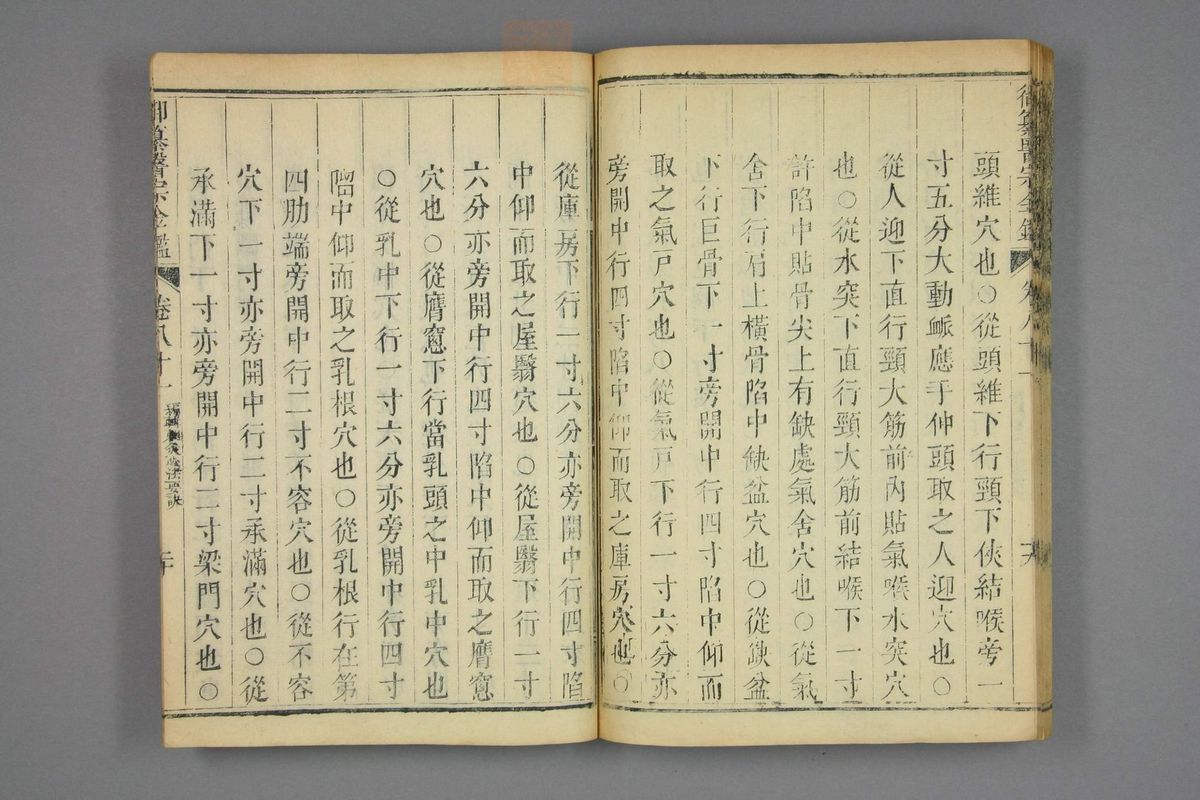 頭維穴也○從頭維下行頸下俠結喉旁一
寸五分大動脈應手伸頭取之人迎穴也○
從人迎下直行頸大筋前內貼氣喉水突穴
也○從水突下直行頸大筋前結喉下一寸
許陷中貼骨尖上有缺處氣舍穴也○從氣
舍下行肩上橫骨陷中缺盆穴也○從缺盆
下行巨骨下一寸旁開中行四寸陷中仰而
取之氣戸穴也○從氣戸下行一寸六分亦
旁開中行四寸陷中仰而取之庫房穴也○
從庫房下行一寸六分亦旁開中行四寸陷
中仰而取之屋翳穴也○從屋翳下行一寸
六分亦旁開中行四寸陷中仰而取之膺窻
穴也○從膺窻下行當乳頭之中乳中穴也
○從乳中下行一寸六分亦旁開中行四寸
陷中仰而取之乳根穴也○從乳根行在第
四肋端旁開中行二寸不容穴也○從不容
穴下一寸亦旁開中行二寸承滿穴也○從
承滿下一寸亦旁開中行二寸梁門穴也○
御纂醫宗金鑑 卷八十一